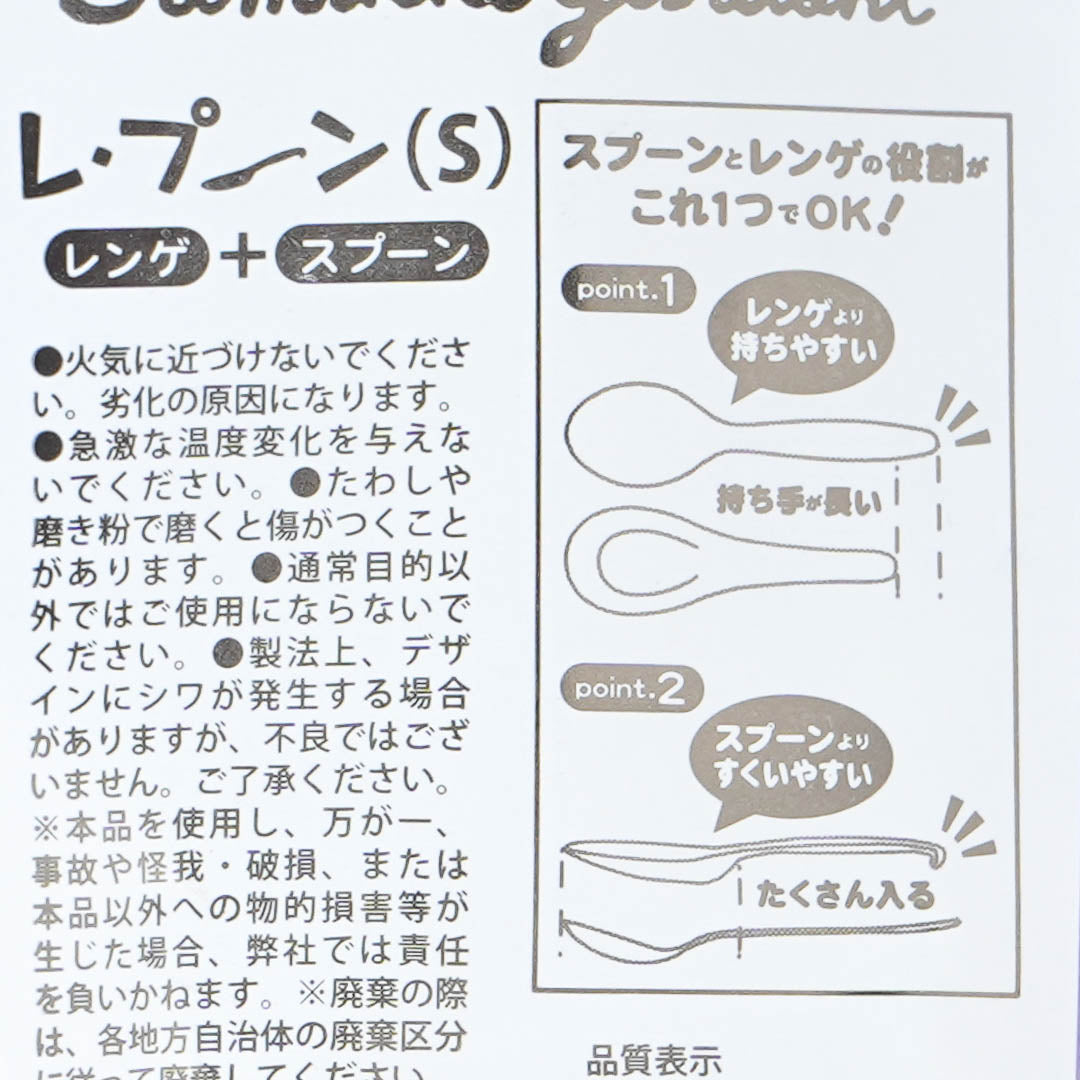 レ・プーン(S)
レンゲ＋スプーン
●火気に近づけないでくださ
い。劣化の原因になります。
●急激な温度変化を与えな
いでください。●たわしや
磨き粉で磨くと傷がつくこと
があります。●通常目的以
外ではご使用にならないで
ください。●製法上、デザ
インにシワが発生する場合
がありますが、不良ではござ
いません。ご了承ください。
※本品を使用し、万が一、
事故や怪我・破損、または
本品以外への物的損害等が
生じた場合、弊社では責任
を負いかねます。※廃棄の際
は、各地方自治体の廃棄区分
に従って廃棄してください。
スプーンとレンゲの役割が
これ1つでOK！
point.1
レンゲより
持ちやすい
持ち手が長い
point.2
スプーンより
すくいやすい
たくさん入る
品質表示